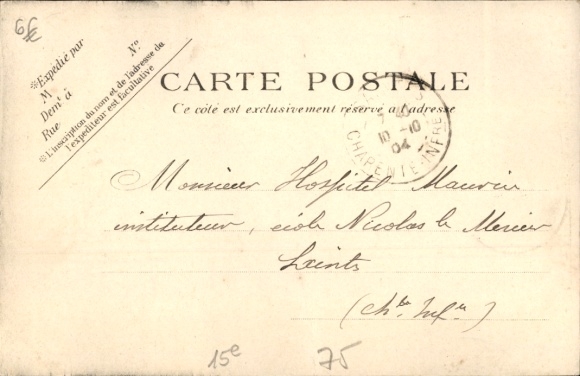 6f
*Expédié par
M
Demt à
Rue
No
*L'inscription du nom et de l'adresse de
l'expéditeur est facultative
CARTE POSTALE
Ce côté est exclusivement réservé à l'adresse
10 -10
04
CHARENTE-INFRE
Monsieur Hospitel-Maurin
instituteur, école Nicolas le Mercier
Saintes
(Chte Infre)
15e
75